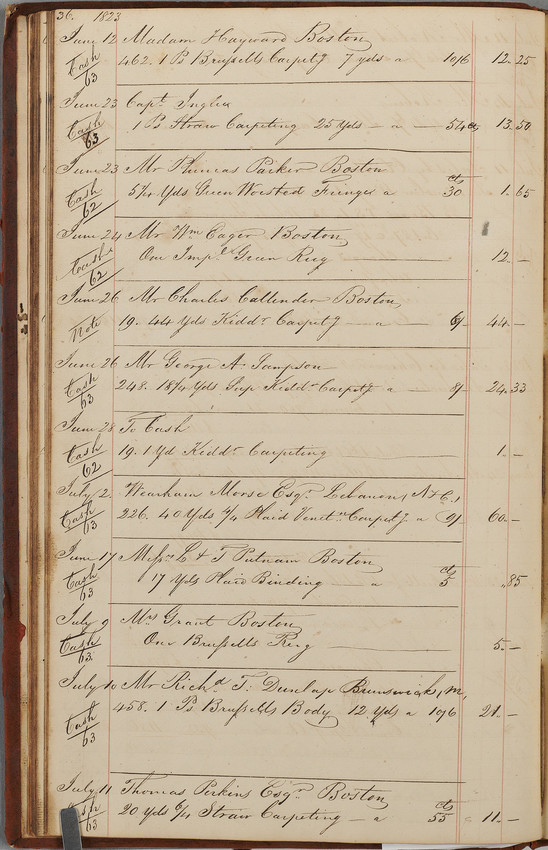 36. 1823
June 12 Madam Hayward Boston
Cash 63 462. 1 Ps Brussells Carpetg 7 yds a 10/6 12.25
June 23 Capt Inglee
Cash 63 1 Ps Straw Carpeting 25 Yds — a — 54 cts 13.50
June 23 Mr Thomas Parker Boston
Cash 62 5¼ Yds Green Worsted Fringe a cts 30 1.65
June 24 Mr Wm Eager Boston
Cash 62 One Imp. Green Rug 12 —
June 26 Mr Charles Callender Boston,
Note 19. 44 Yds Kiddr Carpetg — a — 6/- 44 —
June 26 Mr George A. Sampson
Cash 63 248. 18¼ Yds Sup Kiddr Carpetg a — 8/ 24.33
June 28 To Cash
Cash 62 19. 1 Yd Kiddr Carpeting 1. —
July 2. Wearham Morse Esqr Lebanon, N.
Cash 63 226. 40 Yds 4/4 Plaid Venetn Carpetg a 9/ 60. —
June 17 Missrs L & T Putnam Boston
Cash 63 17 Yds Plaid Binding — a cts 5 .85
July 9 Mrs Grant Boston
Cash 63. One Brussells Rug 5. —
July 10 Mr Richd T. Dunlap Brunswick, M,
Cash 63 458. 1 Ps Brussells Body 12 Yds a 10/6 21. —
July 11 Thomas Perkins Esqr Boston
63 20 Yds 6/4 Straw Carpeting — a cts 55 11 —